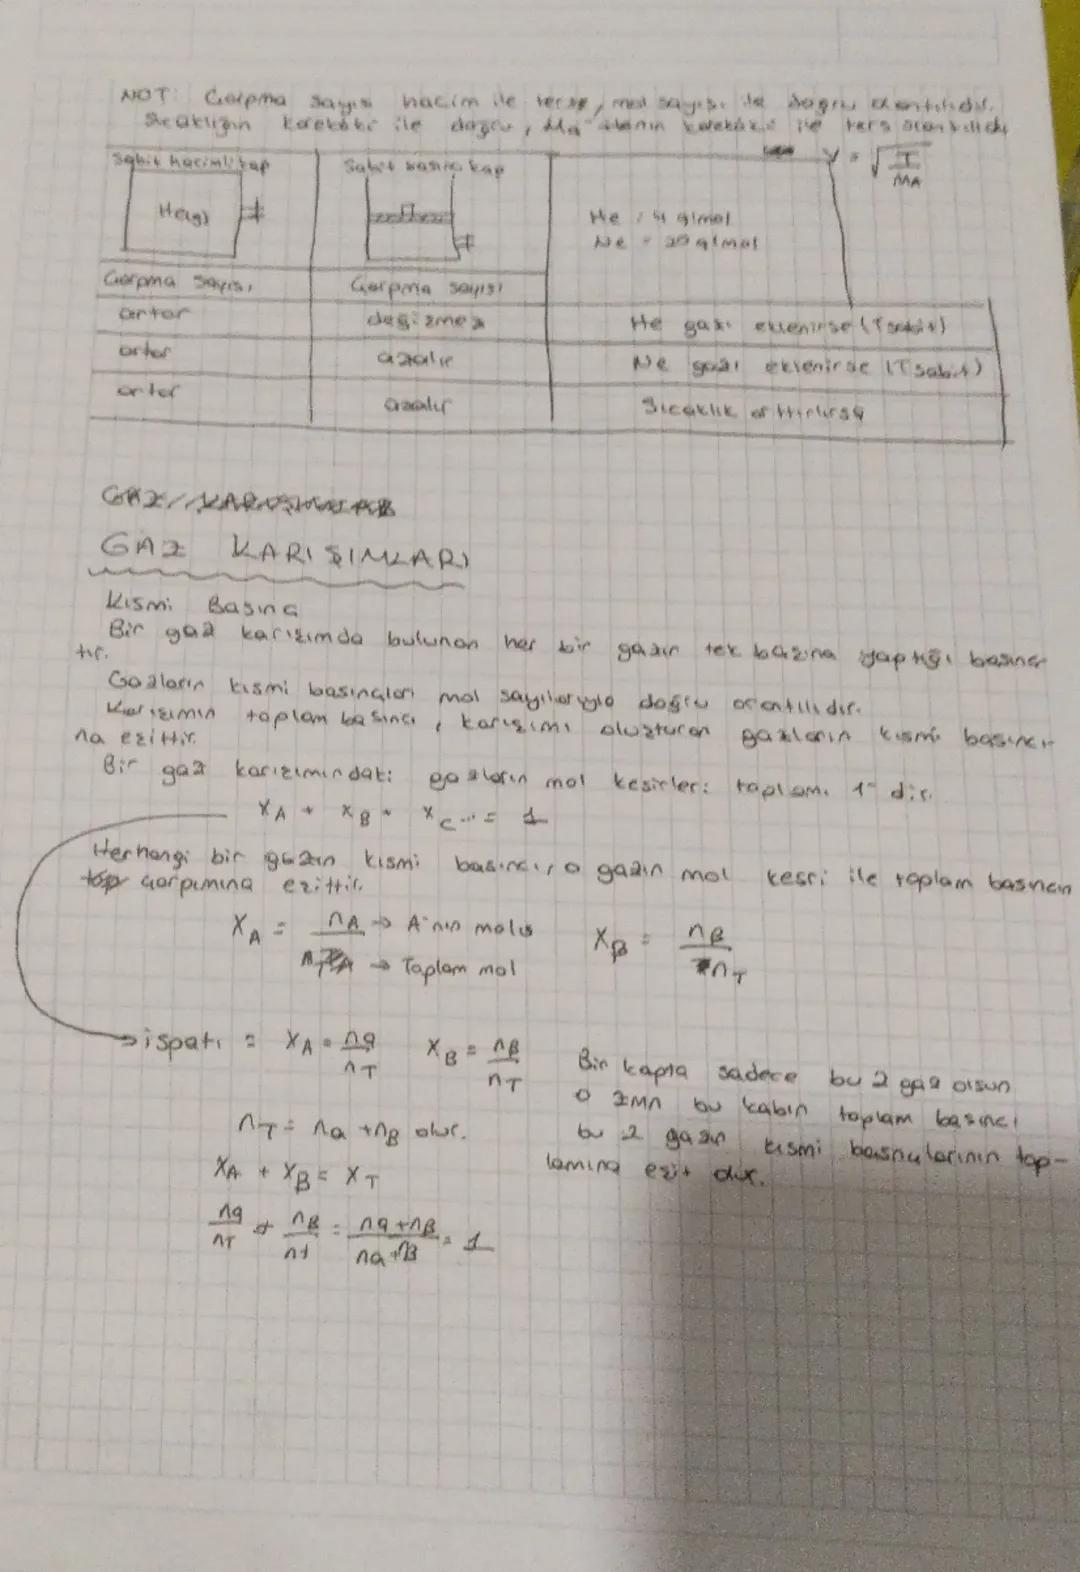 NOT: Çarpma sayısı hacim ile ters, mol sayısı ile doğru orantılıdır.
Sıcaklığın karekökü ile doğru, Ma'lanın karekökü ile ters orantılıdı
V = √T/MA
Sabit hacimli kap
Sabit basınç kap
He(g)
He : 4 g/mol
Ne = 20 g/mol
Çarpma sayısı
Çarpma sayısı
artar
değişmez
He gazı eklenirse (T sabit)
artar
azalır
Ne gazı eklenirse (T sabit)
artar
azalır
Sıcaklık arttırılırsa
GAZ KARIŞIMLAR
GAZ KARIŞIMLARI
Kısmi Basınç
Bir gaz karışımda bulunan her bir gazın tek başına yaptığı basınç-
tır.
Gazların kısmi basınçları mol sayılarıyla doğru orantılıdır.
Karışımın toplam basıncı, karışımı oluşturan gazların kısmi basıncı-
na eşittir.
Bir gaz karışımındaki gazların mol kesirleri toplamı 1'dir.
XA + XB + XC... = 1
Herhangi bir gazın kısmi basıncı, o gazın mol kesri ile toplam basıncın
top çarpımına eşittir.
XA = nA → A'nın molü
nT → Toplam mol
XB = nB
nT
→ ispatı = XA = na/nT XB = nB/nT
Bir kapta sadece bu 2 gaz olsun
o zmn bu kabın toplam basıncı
bu 2 gazın kısmi basınçlarının top-
lamına eşit olur.
nT = na + nB olur.
XA + XB = XT
na/nT + nB/nt = na+nB/na+nB = 1